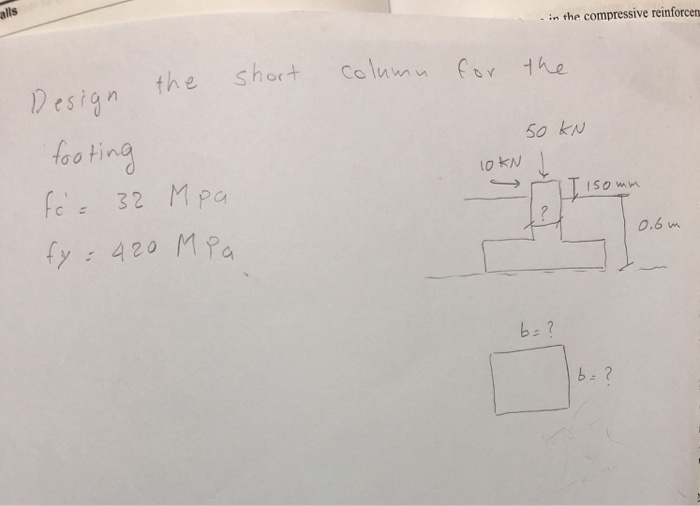 alls
in the compressive reinforcen
Design the short column for the
footing
fc' = 32 Mpa
fy = 420 MPa
50 kN
10 kN
150 mm
?
0.6 m
b = ?
b = ?